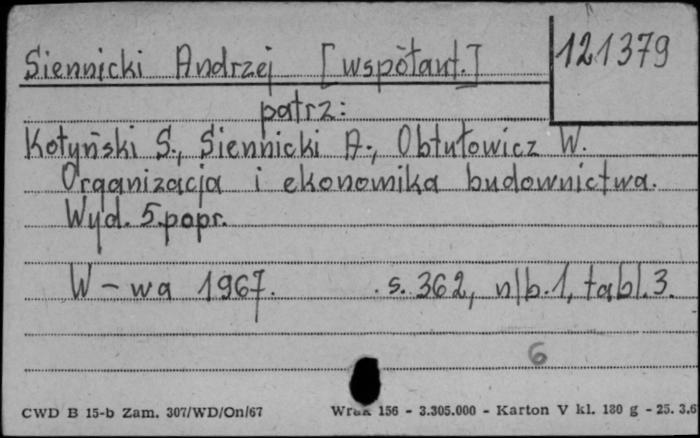 Siennicki Andrzej [współaut.]
121379
patrz:
Kotyński S., Siennicki A., Obtułowicz W.
Organizacja i ekonomika budownictwa.
Wyd. 5 popr.
W-wa 1967. s. 362, nlb. 1, tabl. 3.
6
CWD B 15-b Zam. 307/WD/On/67 156 - 3.305.000 - Karton V kl. 180 g - 25. 3.6